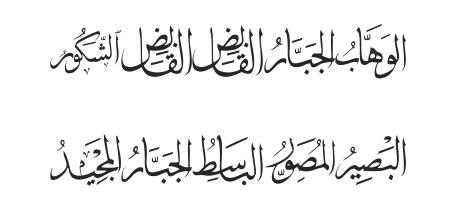 الوَهَّابُ الجَبَّارُ القَابِضُ القَابِضُ ٱلشَّكُورُ
البَصِيرُ المُصَوِّرُ البَاسِطُ الجَبَّارُ المَجِيدُ